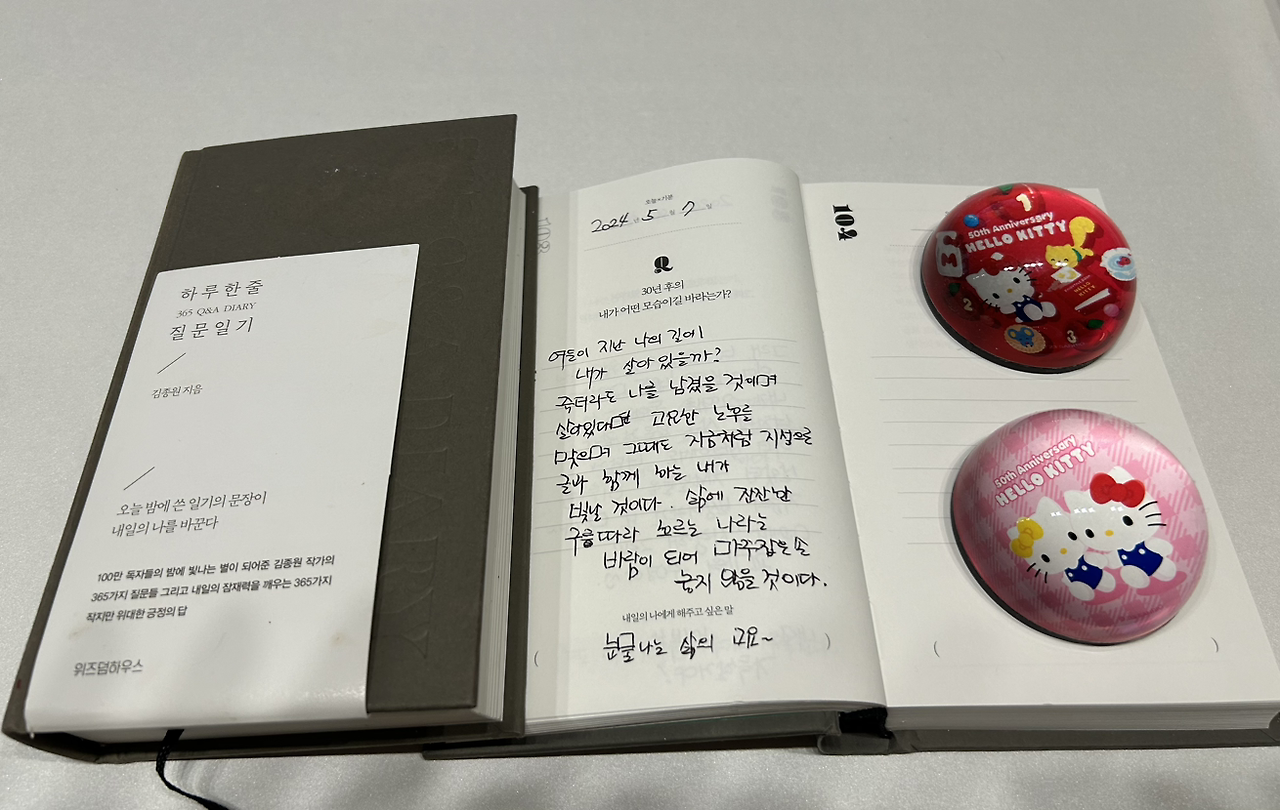 하루 한 줄
365 Q&A DIARY
질문 일기
김종원 지음
오늘 밤에 쓴 일기의 문장이
내일의 나를 바꾼다
100만 독자들의 밤에 빛나는 별이 되어준 김종원 작가의
365가지 질문들 그리고 내일의 잠재력을 깨우는 365가지
작지만 위대한 긍정의 답
위즈덤하우스
오늘의 기분
2024년 5월 7일
Q
30년 후의
내가 어떤 모습이길 바라는가?
여든이 지난 나의 길에
내가 살아 있을까?
죽더라도 나를 남겼을 것이며
살아있다면 고요한 노후를
맞으며 그때도 지금처럼 지성으로
글과 함께 하는 내가
빛날 것이다. 삶에 잔잔한
구름따라 흐르는 나라는
바람이 되어 마주잡은 손
놓지 않을 것이다.
내일의 나에게 해주고 싶은 말
( 눈물나는 삶의 고요~ )
104
( )
1
50th Anniversary
HELLO KITTY
HELLO
KITTY
2
3
50th Anniversary
HELLO KITTY